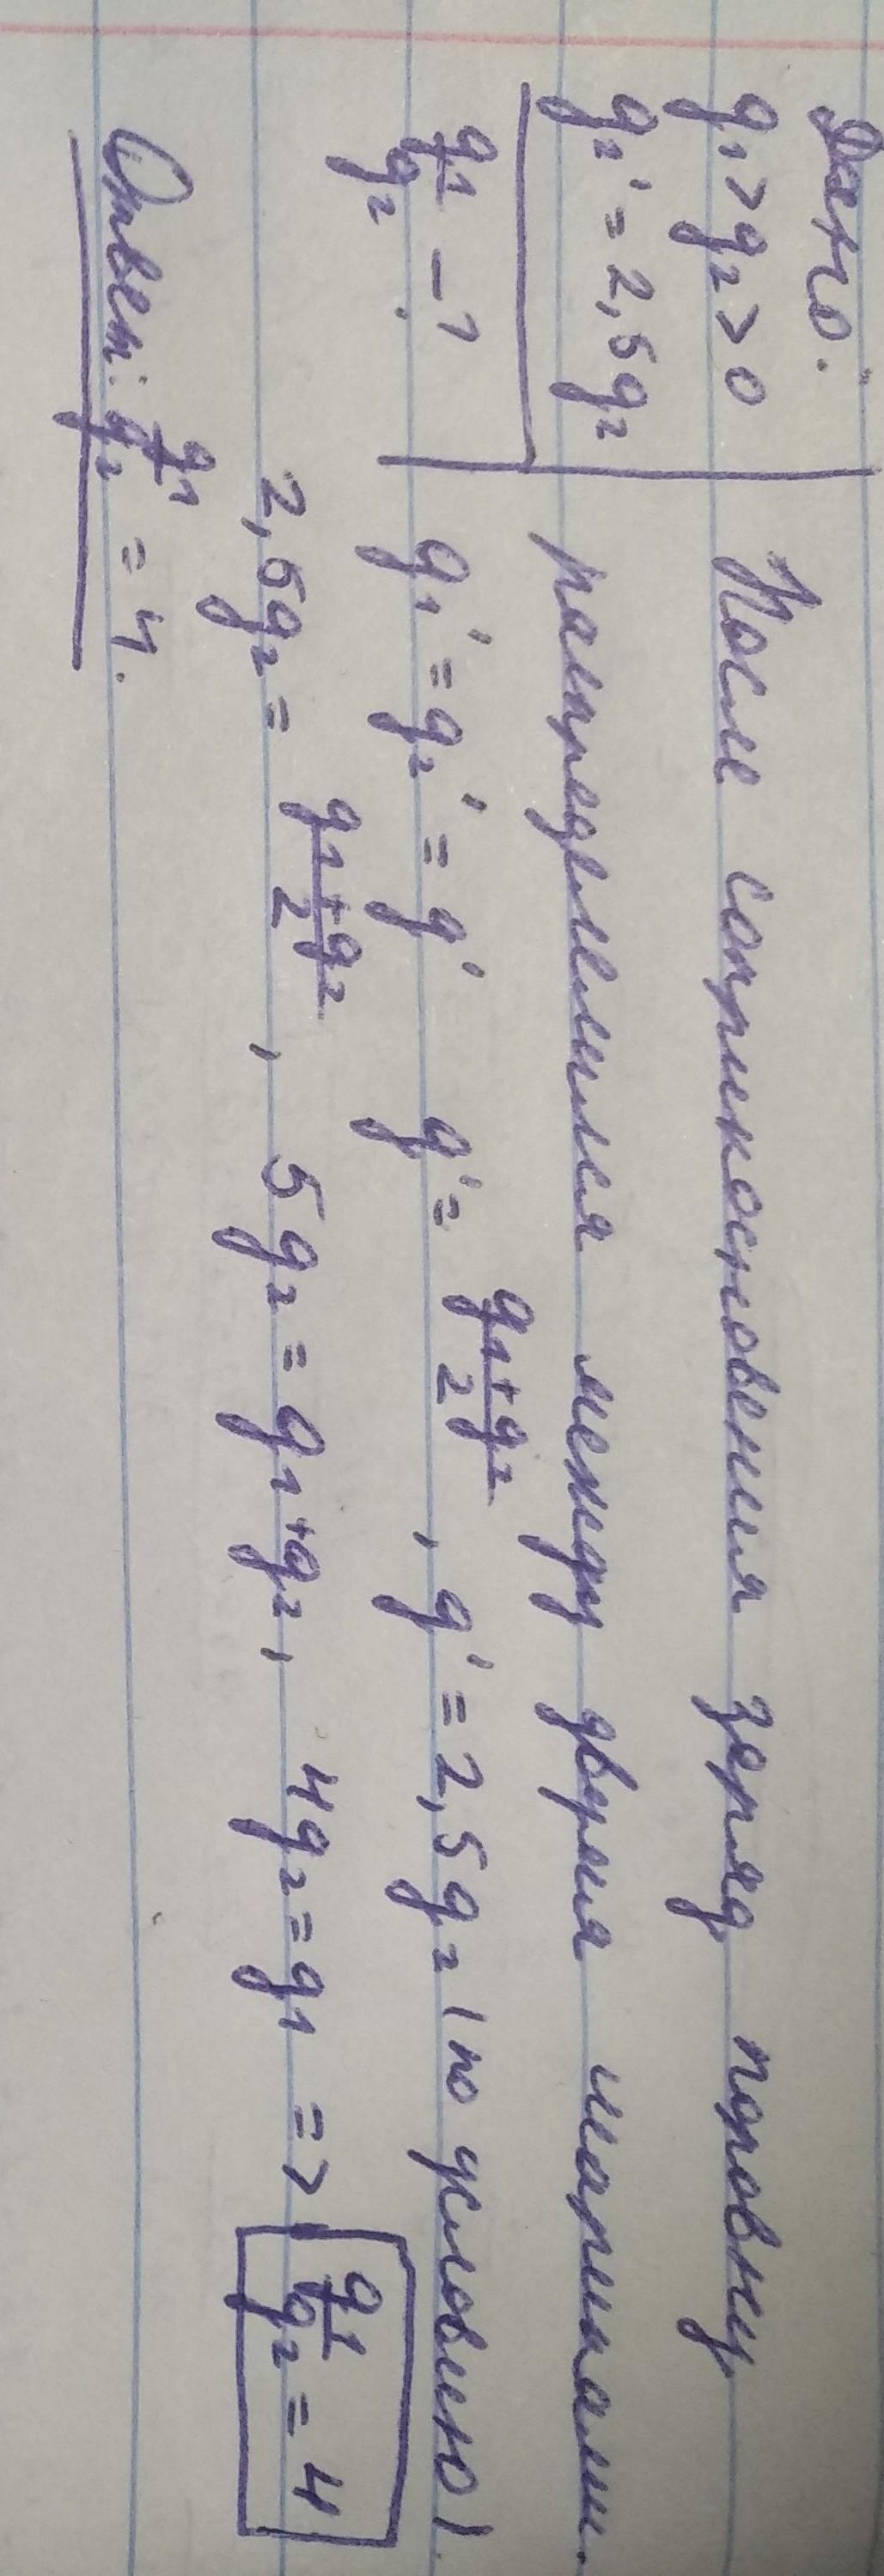 Дано:
q₁>q₂>0
q₂' = 2,5q₂
q₁/q₂ - ?
После соприкосновения заряд поровну
распределился между двумя шариками.
q₁' = q₂' = q' q' = (q₁+q₂)/2, q' = 2,5q₂ (по условию).
2,5q₂ = (q₁+q₂)/2, 5q₂ = q₁+q₂, 4q₂ = q₁ => q₁/q₂ = 4
Ответ: q₁/q₂ = 4.